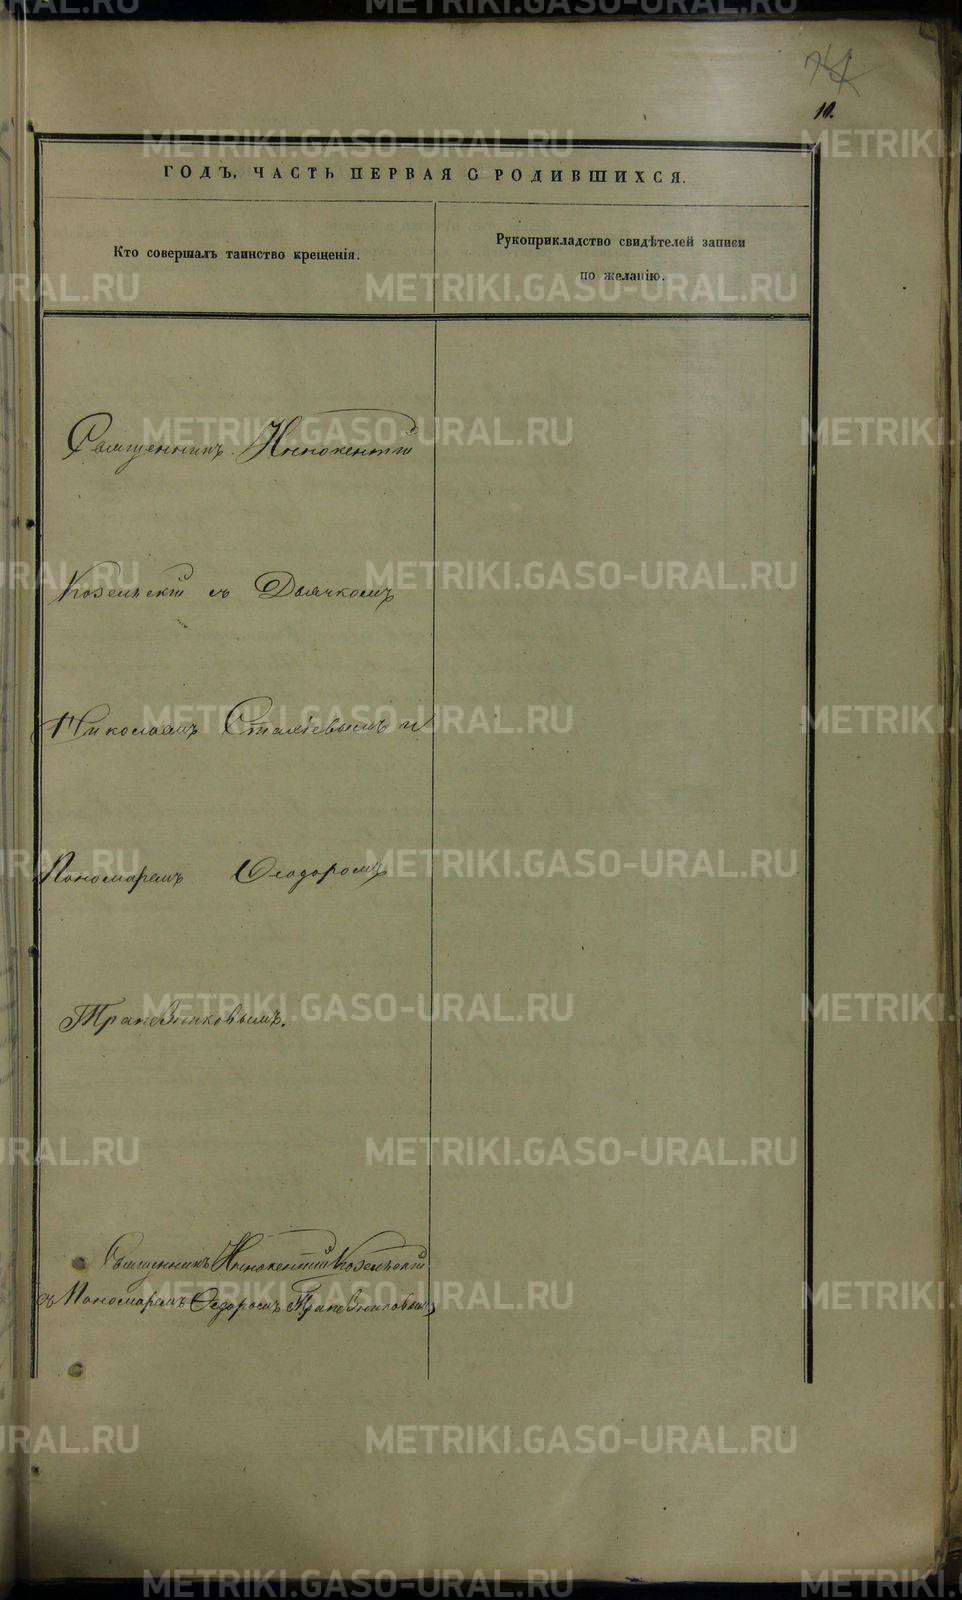 10.
ГОДЪ, ЧАСТЬ ПЕРВАЯ О РОДИВШИХСЯ.
Кто совершалъ таинство крещенія.
Рукоприкладство свидѣтелей записи
по желанію.
Священникъ Иннокентій
Козельскій съ Дьячкомъ
Николаемъ и
Пономаремъ Ѳеодоромъ
Трапезниковымъ.
Священникъ Иннокентій Козельскій
съ Пономаремъ Ѳеодоромъ Трапезниковымъ
METRIKI.GASO-URAL.RU